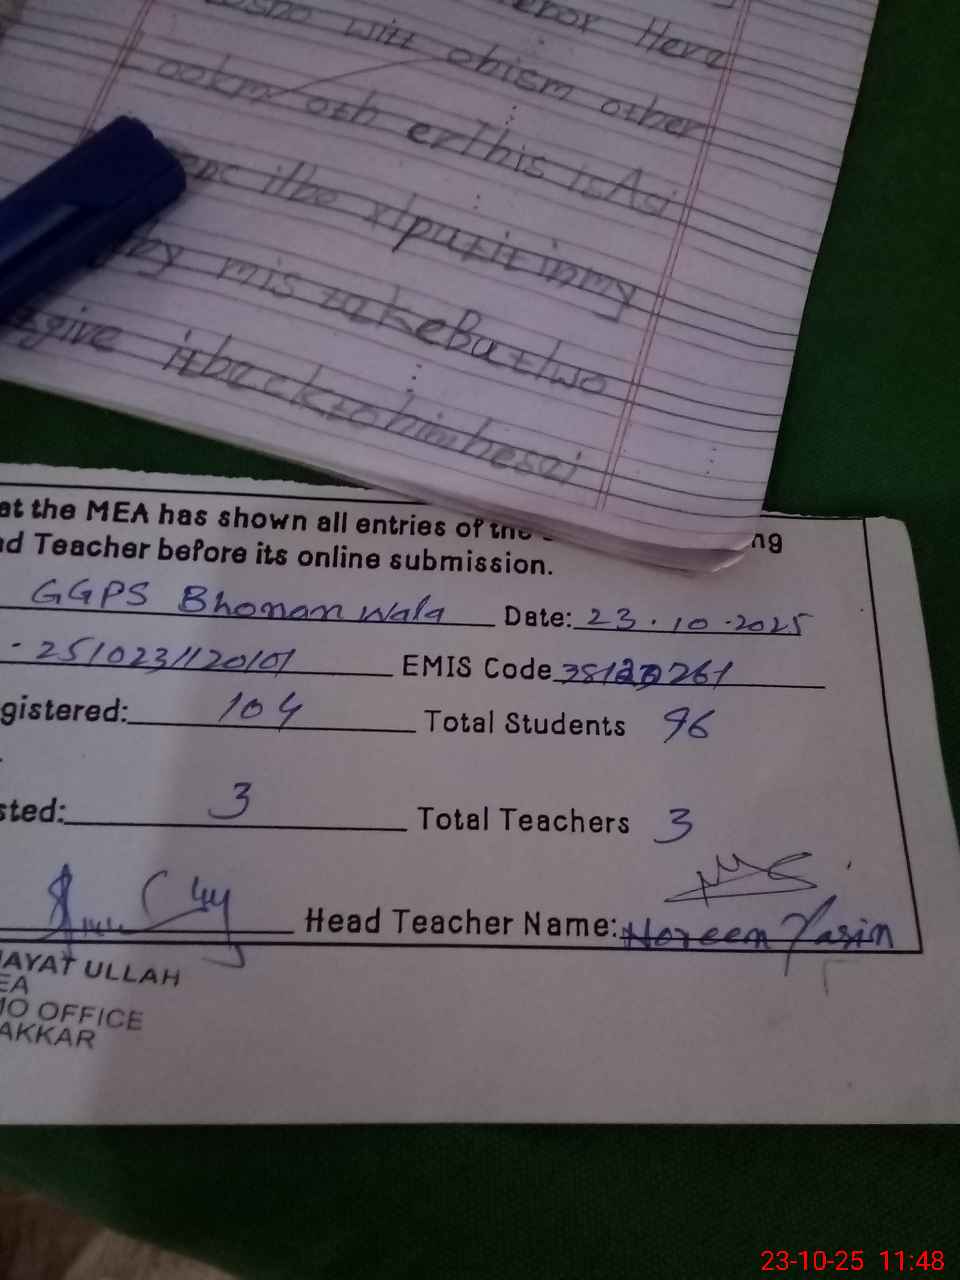 Here
will obism other
oth erThis is Asi
itbe xlputit inmy
by mis takeButwo
give itbacktohimbesai
at the MEA has shown all entries of the
ng
ad Teacher before its online submission.
GGPS Bhoman Wala Date: 23.10.2025
- 2510231120101 EMIS Code
gistered: 104 Total Students 96
sted: 3 Total Teachers 3
Head Teacher Name: Noreen Yasin
AYAT ULLAH
EA
MO OFFICE
AKKAR
23-10-25 11:48